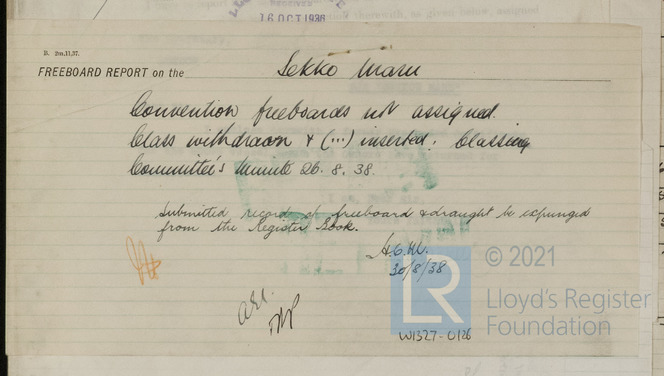 RECEIVED
16 OCT 1936
as given below, assigned
R. 2m,11,37.
FREEBOARD REPORT on the Sekko Maru
Convention freeboards not assigned.
Class withdrawn & (...) inserted. Classing
Committee's Minute 26.8.38.
Submitted record of freeboard & draught be expunged
from the Register Book.
30/8/38
© 2021
LR
Lloyd's Register
Foundation
W1327-0126